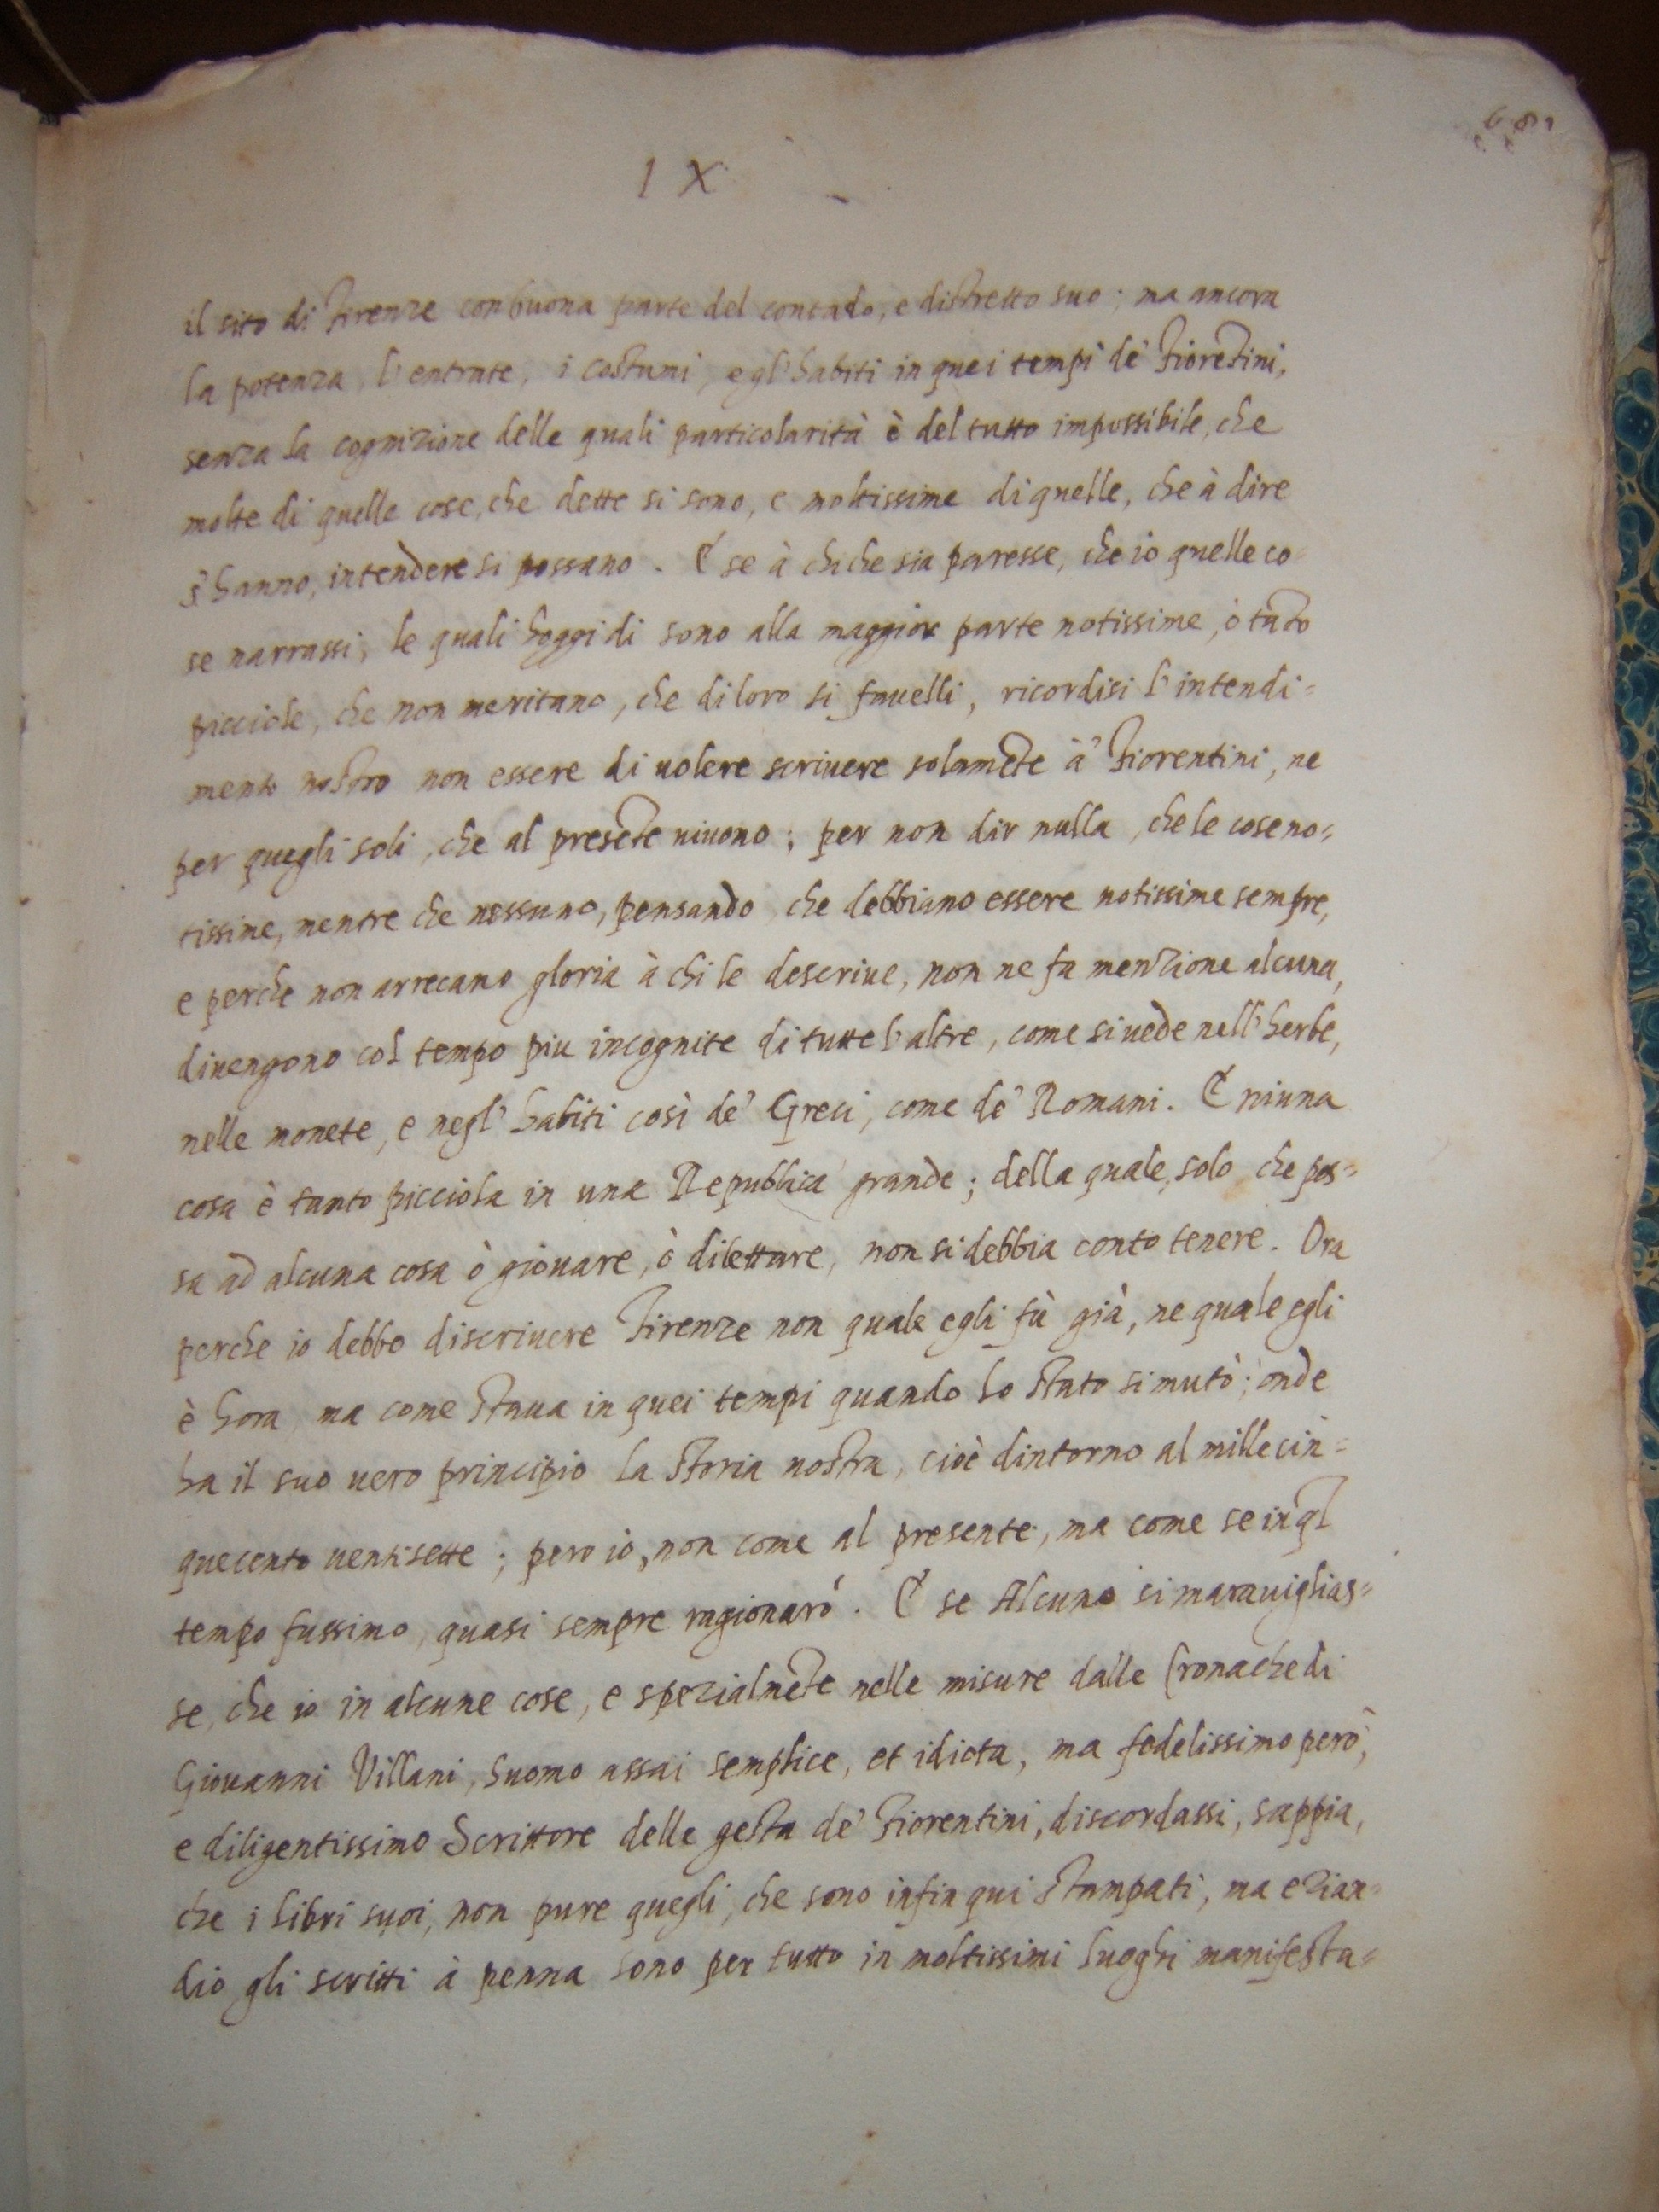 IX
il sito di Firenze con buona parte del contado, e distretto suo; ma ancora
la potenza, l'entrate, i costumi, e gl'habiti in quei tempi de' Fiorẽtini,
senza la cognizione delle quali particolarità è del tutto impossibile, che
molte di quelle cose, che dette si sono, e moltissime di quelle, che à dire
s'hanno, intendere si possano. E se à chi che sia paresse, che io quelle co=
se narrassi, le quali hoggi di sono alla maggior parte notissime, ò tãto
picciole, che non meritano, che di loro si fauelli, ricordisi l'intendi=
mento nostro non essere di uolere scriuere solamẽte à Fiorentini, ne
per quegli soli, che al presẽte uiuono; per non dir nulla, che le cose no=
tissime, mentre che nessuno, pensando, che debbiano essere notissime sempre,
e perche non arrecano gloria à chi le descriue, non ne fa menzione alcuna,
diuengono col tempo piu incognite di tutte l'altre, come si uede nell'herbe,
nelle monete, e negl'habiti così de' Greci, come de' Romani. E niuna
cosa è tanto picciola in una Republica grande; della quale, solo che pos=
sa ad alcuna cosa ò giouare, ò dilettare, non si debbia conto tenere. Ora
perche io debbo discriuere Firenze non quale egli fù già, ne quale egli
è hora, ma come staua in quei tempi quando lo stato si mutò; onde
ha il suo uero principio la storia nostra, cioè dintorno al mille cin=
quecento uentisette; pero io, non come al presente, ma come se in ql̃
tempo fussimo, quasi sempre ragionarò. E se Alcuno si marauiglias=
se, che io in alcune cose, e spezialmẽte nelle misure dalle Cronache di
Giouanni Villani, huomo assai semplice, et idiota, ma fedelissimo però,
e diligentissimo Scrittore delle gesta de' Fiorentini, discordassi, sappia,
che i libri suoi, non pure quegli, che sono infin qui stampati, ma ezian=
dio gli scritti à penna sono per tutto in moltissimi luoghi manifesta=